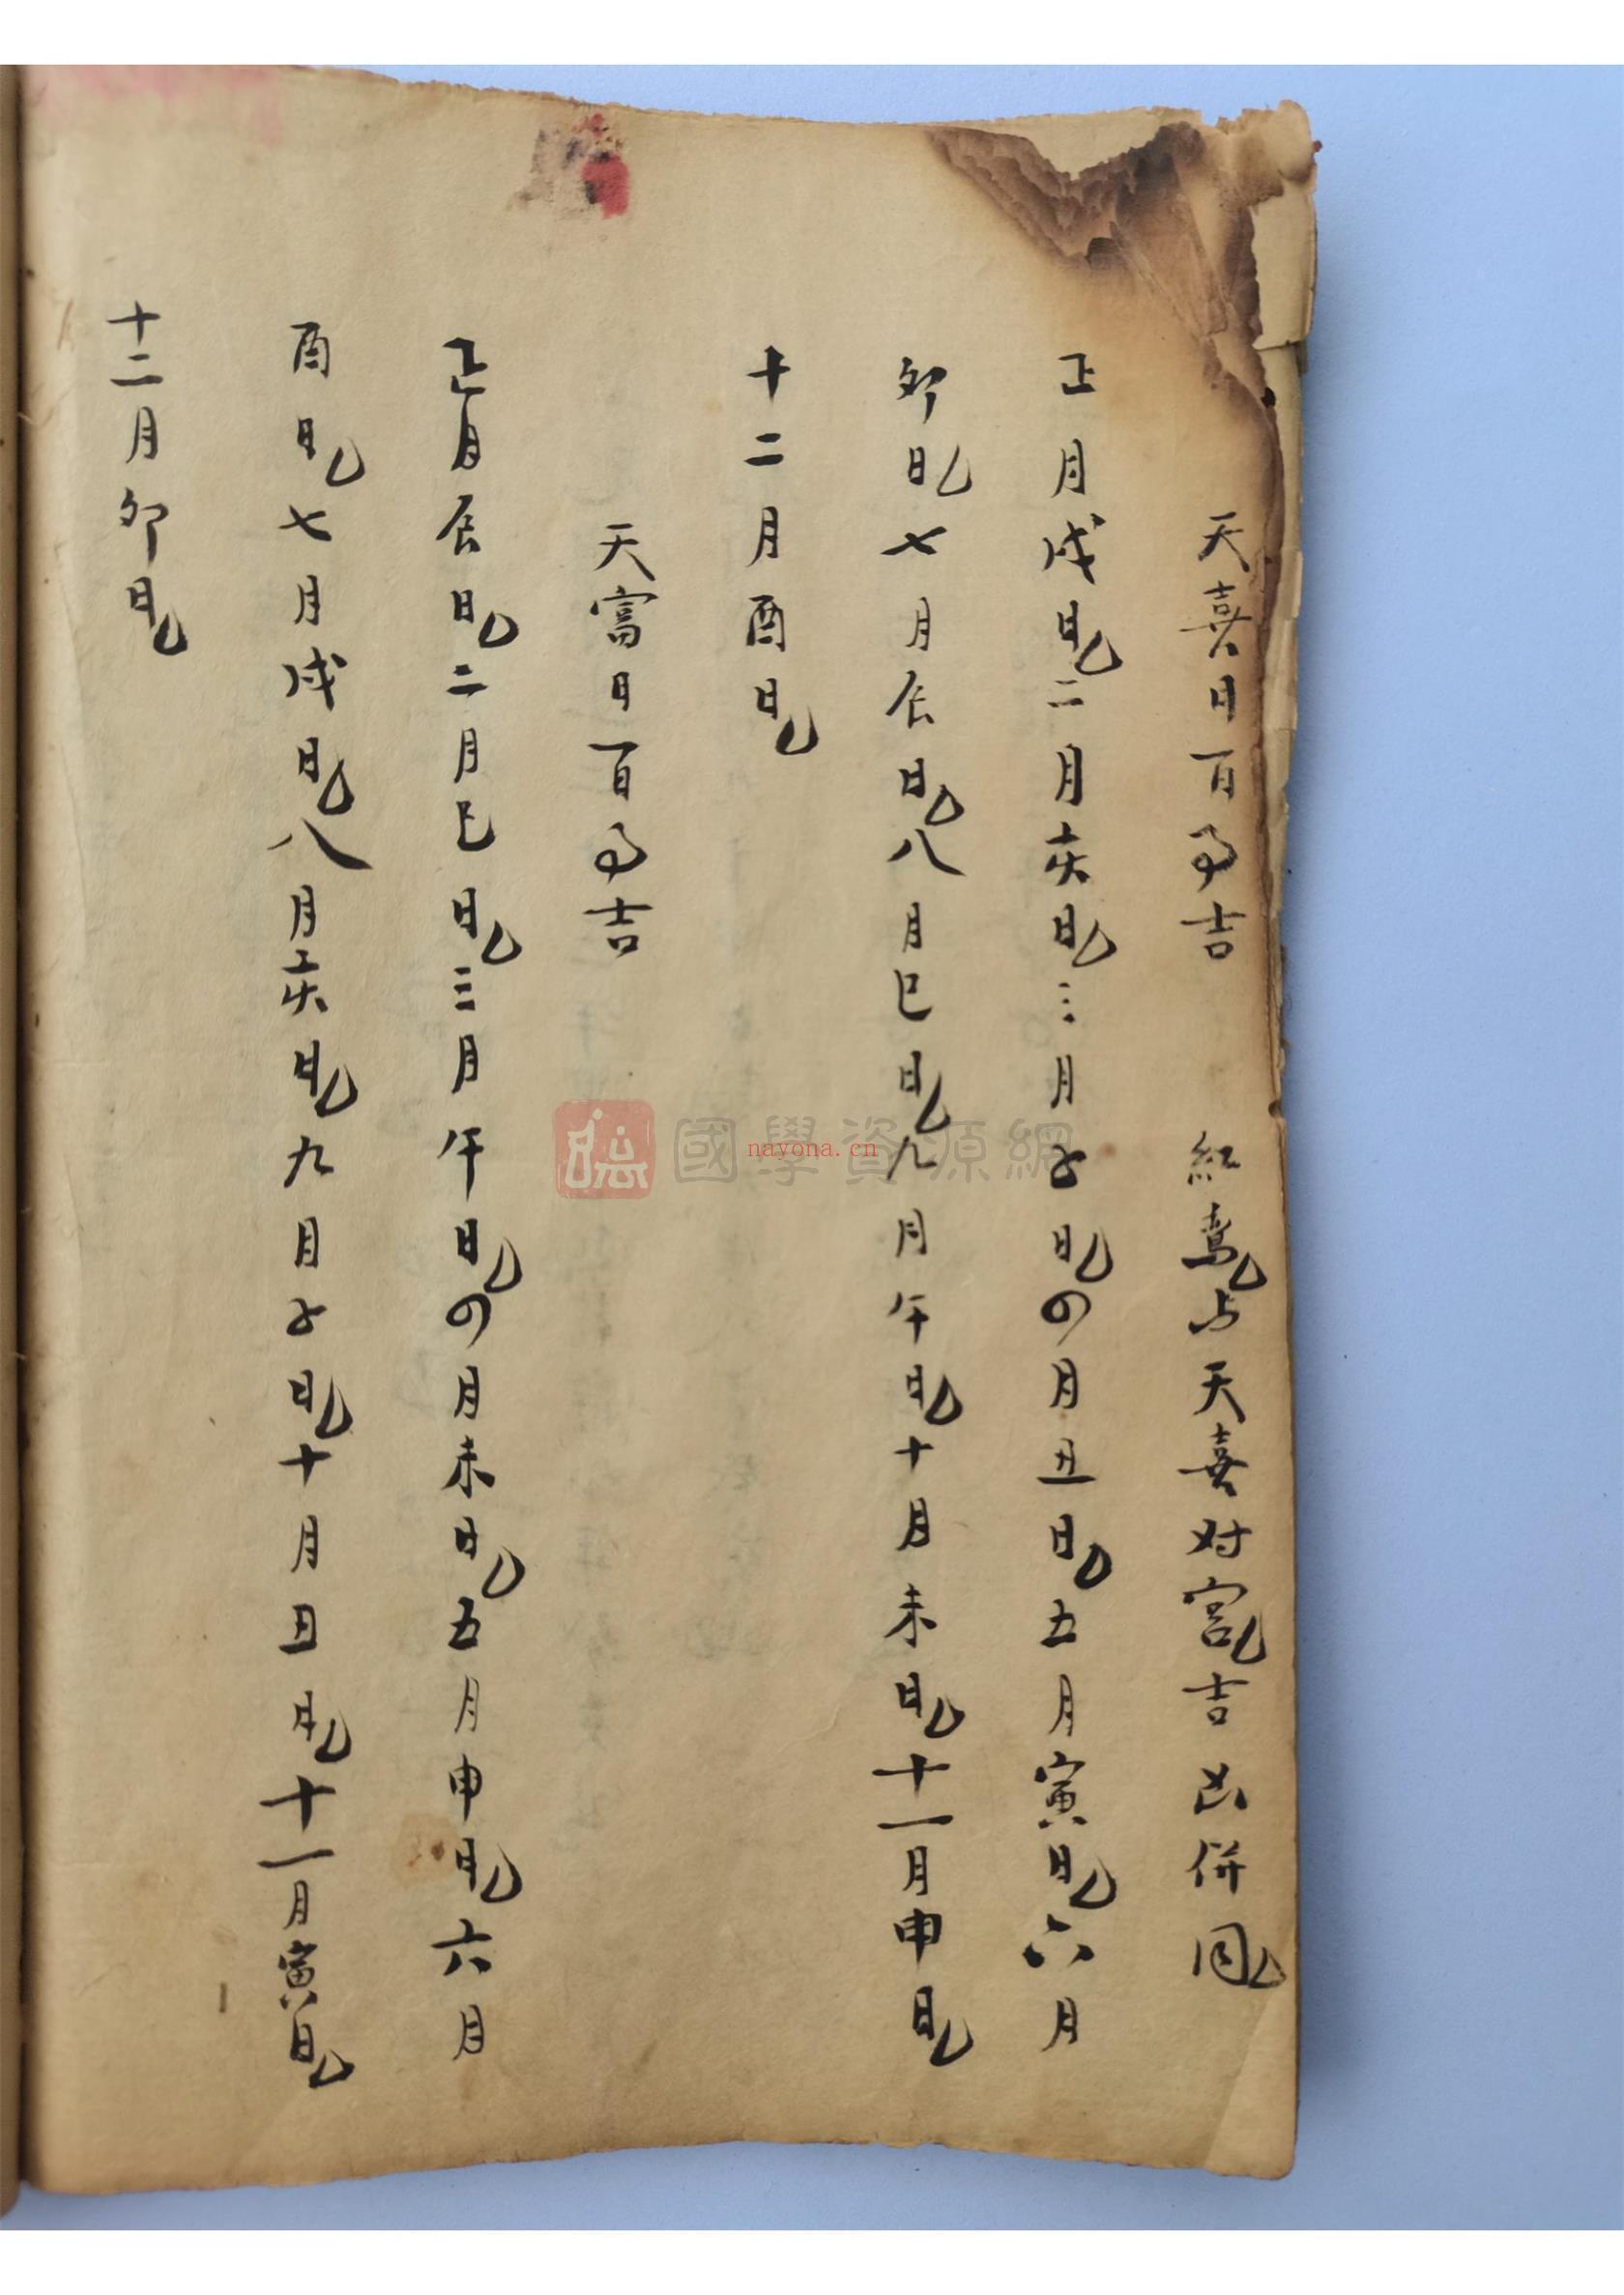 天喜日百事吉　紅鸾与天喜对宮吉凶併同
正月戌日二月亥日三月子日四月丑日五月寅日六月
卯日七月辰日八月巳日九月午日十月未日十一月申日
十二月酉日
天富日百事吉
正月辰日二月巳日三月午日四月未日五月申日六月
酉日七月戌日八月亥日九月子日十月丑日十一月寅日
十二月卯日
國學資源網
nayona.cn